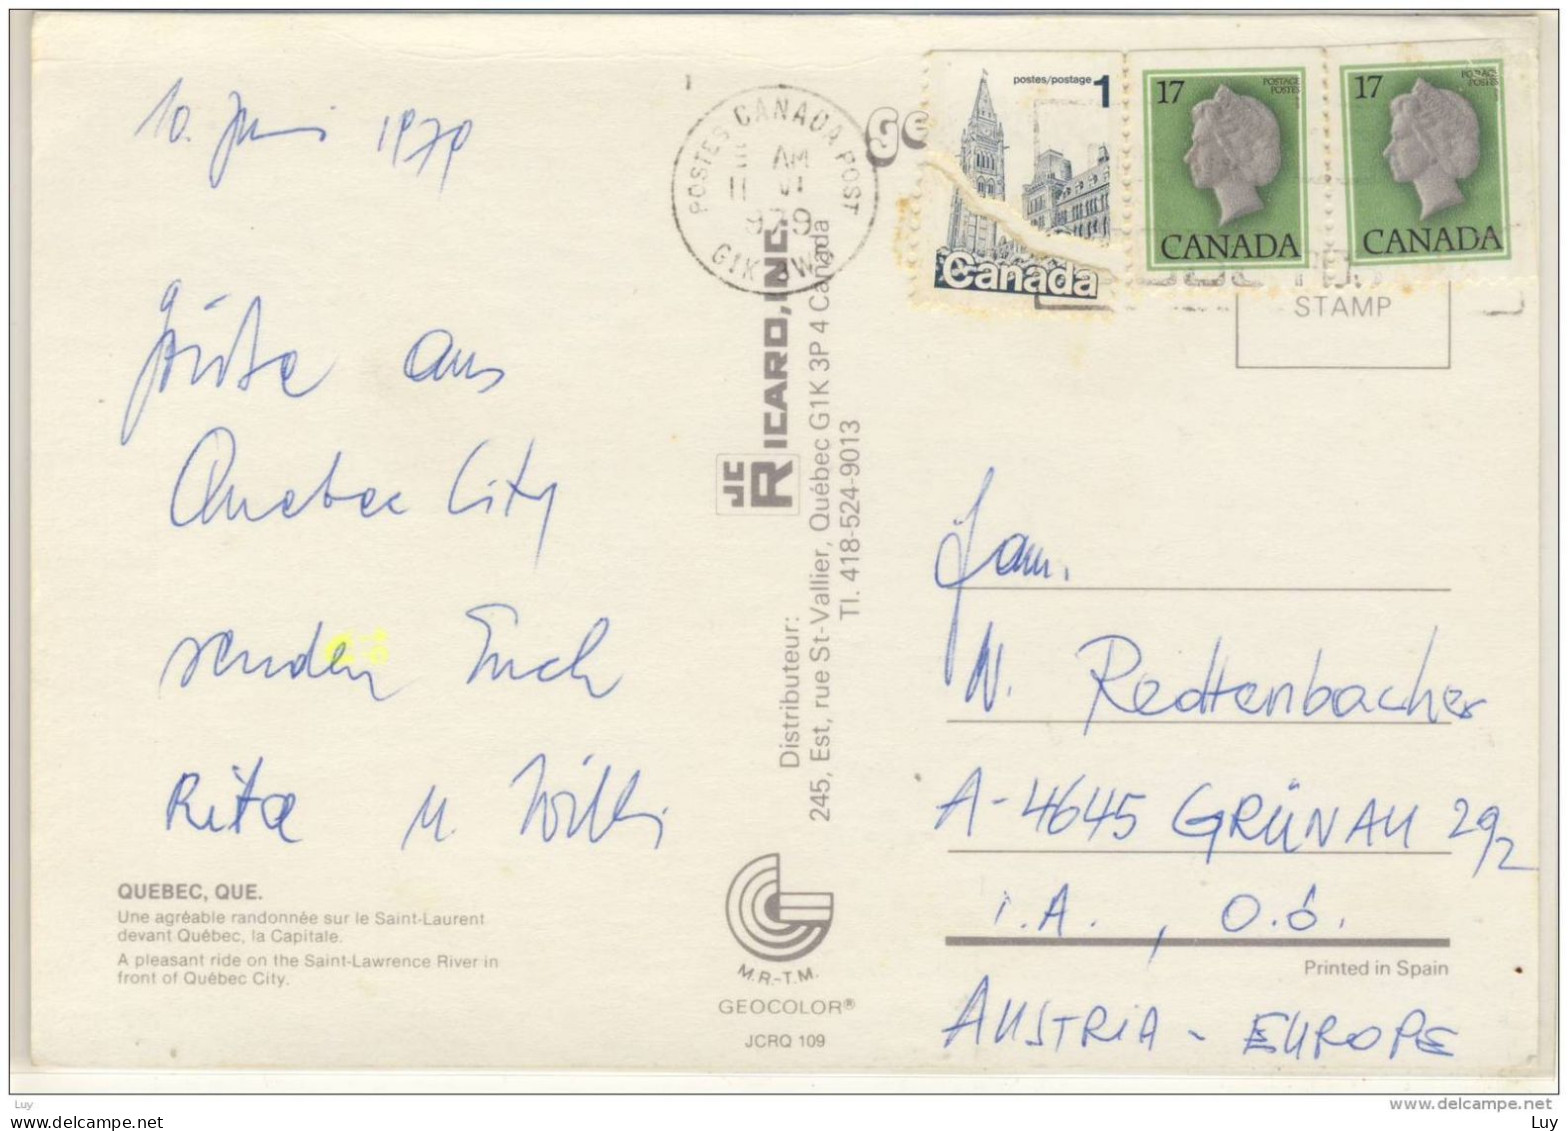 10. Juni 1979
Grüße aus
Quebec City
senden Euch
Rita u. Willi
QUEBEC, QUE.
Une agréable randonnée sur le Saint-Laurent
devant Québec, la Capitale.
A pleasant ride on the Saint-Lawrence River in
front of Québec City.
POSTES CANADA POST
AM
11 VI
1979
G1K
JC RICARD, INC.
Distributeur:
245, Est, rue St-Vallier, Québec G1K 3P4 Canada
Tl. 418-524-9013
M.R.-T.M.
GEOCOLOR®
JCRQ 109
postes/postage 1
Canada
17 POSTAGE POSTES
CANADA
17 POSTAGE POSTES
CANADA
STAMP
Fam.
W. Redtenbacher
A-4645 GRÜNAU 29/2
i.A., O.Ö.
Printed in Spain
AUSTRIA - EUROPE
Luy
www.delcampe.net
www.delcampe.net
Luy